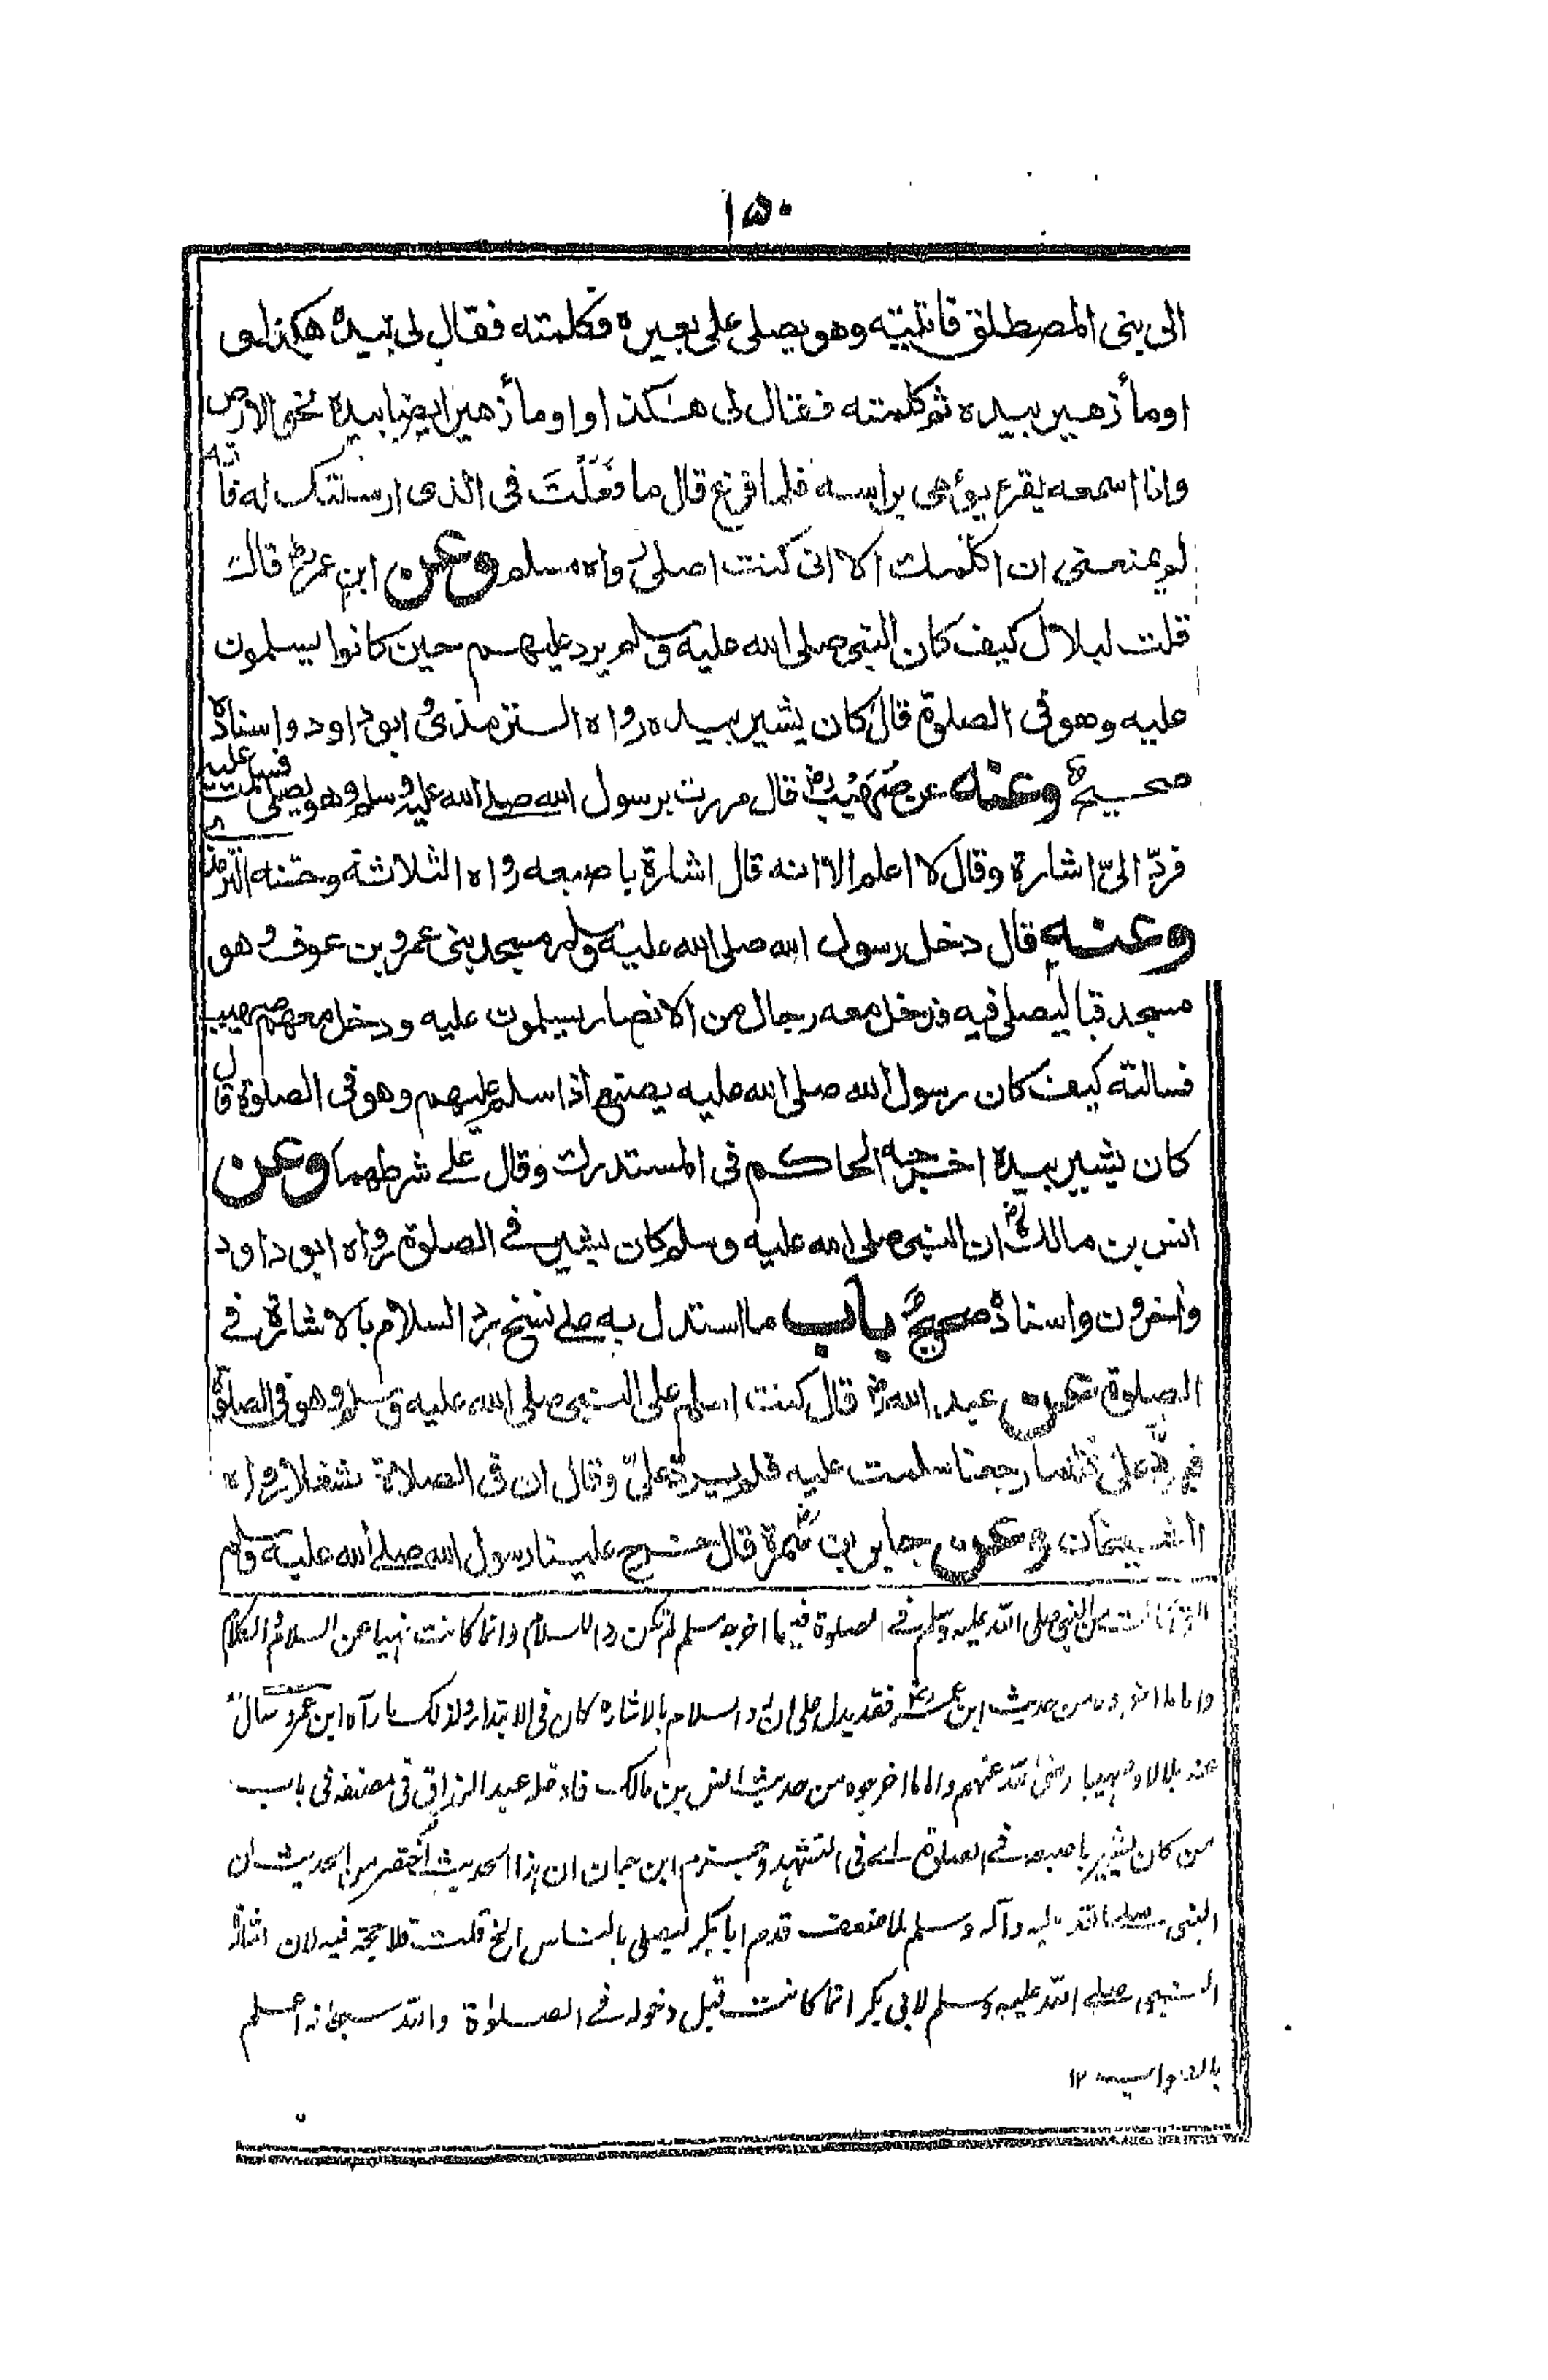 ١٥٠
الى بنى المصطلق فاتيته وهو يصلى على بعيره فكلمته فقال لى بيده هكذا و
اومأ زهير بيده ثم كلمته فقال لى هكذا واومأ زهير ايضا بيده نحو الارض
وانا اسمعه يقرء يؤمى براسه فلما فرغ قال ما فعلت فى الذى ارسلتك له فانه
لم يمنعنى ان اكلمك الا انى كنت اصلى رواه مسلم وعن ابن عمرؓ قال
قلت لبلال كيف كان النبى صلى الله عليه وسلم يرد عليهم حين كانوا يسلمون
عليه وهو فى الصلوة قال كان يشير بيده رواه الترمذى و ابو داود واسناده
صحيح وعنه عن صهيبؓ قال مررت برسول الله صلى الله عليه وسلم وهو يصلى فسلمت عليه
فردّ الىّ اشارة وقال لا اعلم الا انه قال اشارة باصبعه رواه الثلاثة وحسنه الترمذى
وعنه قال دخل رسول الله صلى الله عليه وسلم مسجد بنى عمرو بن عوف وهو
مسجد قبا ليصلى فيه فدخل معه رجال من الانصار يسلمون عليه ودخل معهم صهيب
فسالته كيف كان رسول الله صلى الله عليه يصنع اذا سلم عليهم وهو فى الصلوة قال
كان يشير بيده اخرجه الحاكم فى المستدرك وقال على شرطهما وعن
انس بن مالكؓ ان النبى صلى الله عليه وسلم كان يشير فى الصلوة رواه ابو داود
واخرون واسناده صحيح باب ما استدل به على نسخ رد السلام بالاشارة فى
الصلوة عن عبد اللهؓ قال كنت اسلم على النبى صلى الله عليه وسلم وهو فى الصلوة
فيردّ علىّ فلما رجعنا سلمت عليه فلم يردّ علىّ وقال ان فى الصلاة شغلا رواه
الشيخان وعن جابر بن سمرة قال خرج علينا رسول الله صلى الله عليه وسلم
كانت من النبى صلى الله عليه وسلم فى الصلوة فيما اخرجه مسلم لم تكن رد السلام وانما كانت نهيا عن السلام والكلام
واما ما اخرجوه من حديث ابن عمرؓ فقد يدل على ان رد السلام بالاشارة كان فى الابتداء ولذلك ما رآه ابن عمر وسال
عنه بلالا وصهيبا رضى الله عنهم واما ما اخرجوه من حديث انس بن مالك فادخله عبد الرزاق فى مصنفه فى باب
من كان يشير باصبعه فى الصلوة اى فى التشهد وجزم ابن حبان ان هذا الحديث اختصر من الحديث ان
النبى صلى الله عليه وآله وسلم لما ضعف قدم ابا بكر ليصلى بالناس الخ قلت فلا حجة فيه لان اشارة
النبى صلى الله عليه وسلم لابى بكر انما كانت قبل دخوله فى الصلوٰة والله سبحانه اعلم
بالصواب ١٢